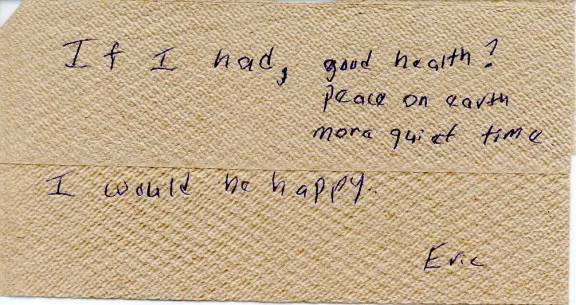 If I had, good health?
peace on earth
more quiet time
I would be happy.
Eric